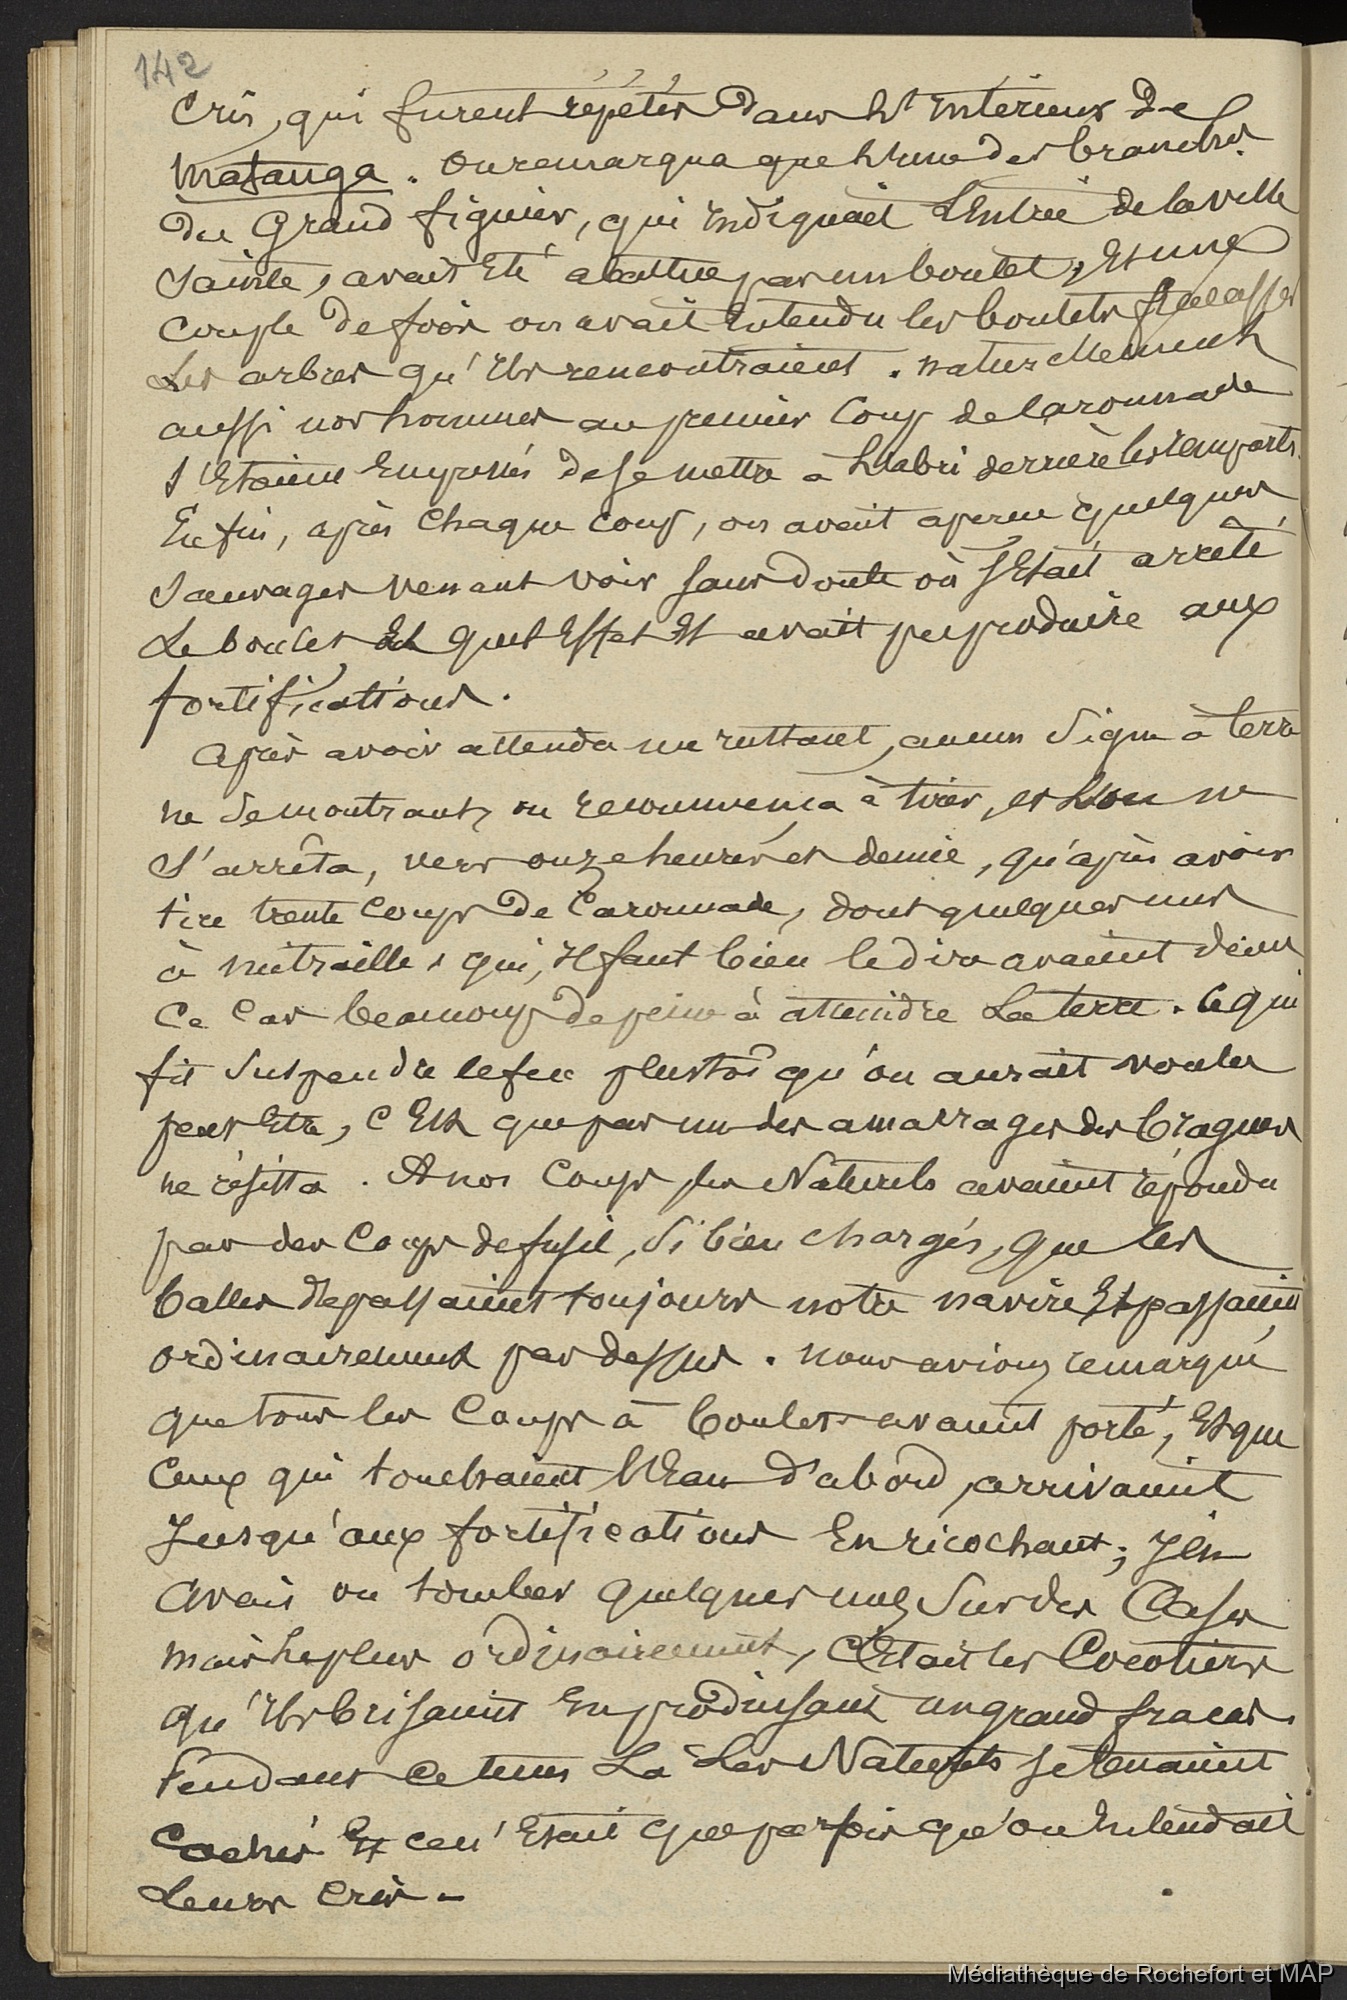 142
Cris, qui furent répétés dans L'intérieur de
Mafanga. on remarqua que L'une des branches
du Grand figuier, qui indiquait L'Entrée de la ville
Sainte, avait Eté abattue par un boulet, Et une
couple de fois on avait Entendu les boulets fracasser
Les arbres qu'Ils rencontraient. naturellement
aussi nos hommes au premier Coup de Caronnade
S'Etaient Empressés de se mettre à L'abri derrière les remparts.
Enfin, après Chaque coup, on avait aperçu quelques
Sauvages venant voir sans doute où s'Etait arrêté
Le boulet Et quel Effet Il avait pu produire aux
fortifications.
Après avoir attendu un instant, aucun Signe à terre
ne Se montrant, on recommença à tirer, et L'on ne
S'arrêta, vers onze heures et demie, qu'après avoir
tiré trente Coups de Caronnade, dont quelques uns
à mitraille, qui, Il faut bien le dire avaient dans
Ce Cas beaucoup de peine à atteindre La terre. Ce qui
fit Suspendre le feu plustôt qu'on aurait voulu
peut Etre, C'Est que pas un des amarrages des bragues
ne résista. A nos Coups, les Naturels avaient répondu
par des Coups de fusil, Si bien chargés, que les
balles dépassaient toujours notre navire Et passaient
ordinairement par dessus. nous avions remarqué
que tous les Coups à boulets avaient porté, Et que
Ceux qui touchaient L'Eau d'abord, arrivaient
Jusqu'aux fortifications En ricochant; J'en
avais vu tomber quelques uns Sur des Cases
mais Le plus ordinairement, C'Etait les Cocotiers
qu'Ils brisaient En produisant un grand fracas.
Pendant Ce tems La Les Naturels se tenaient
Cachés Et ce n'Etait que parfois qu'on Entendait
Leurs Cris -
Médiathèque de Rochefort et MAP